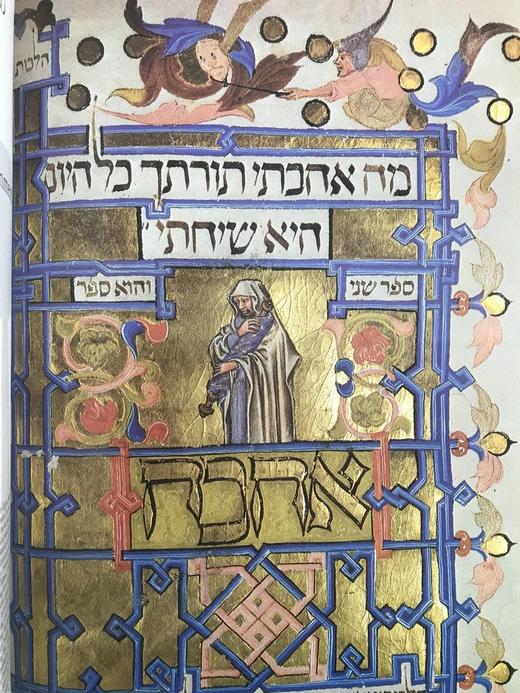 הלכות
מה אהבתי תורתך כל היום
היא שיחתי
ספר שני
והוא ספר
אהבה